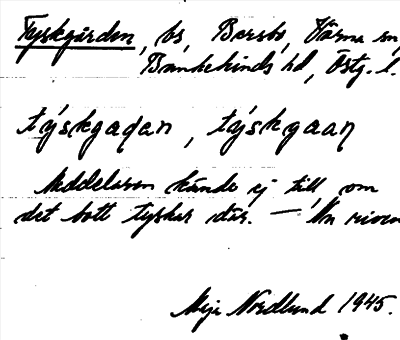 Tyskgården, bs, Barsbo, Värna sn,
Bankekinds hd, Östg. l.
týskgaɖan, týskgaaɳ
Meddelaren kände ej till, om
det bott tyskar där. — Nu riven
Maja Nordlund 1945.